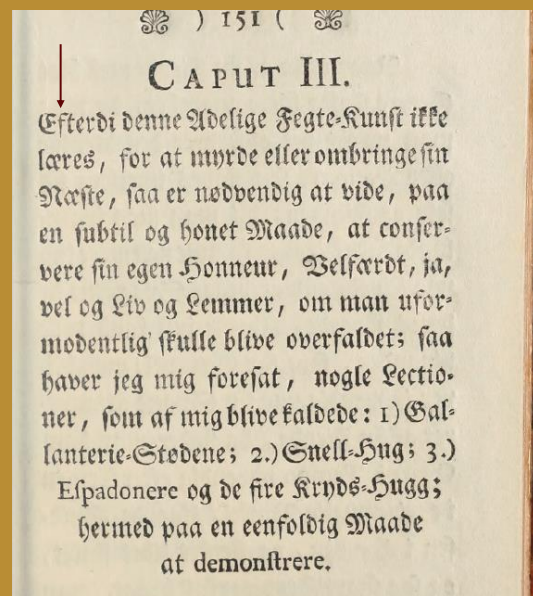 ) 151 (
CAPUT III.
Efterdi denne Adelige Fegte-Kunst ikke
læres, for at myrde eller ombringe sin
Næste, saa er nødvendig at vide, paa
en subtil og honet Maade, at conser-
vere sin egen Honneur, Velfærdt, ja,
vel og Liv og Lemmer, om man ufor-
modentlig skulle blive overfaldet; saa
haver jeg mig foresat, nogle Lectio-
ner, som af mig blive kaldede: 1) Gal-
lanterie-Stødene; 2.) Snell-Hug; 3.)
Eſpadonere og de fire Kryds-Hugg;
hermed paa en eenfoldig Maade
at demonſtrere.